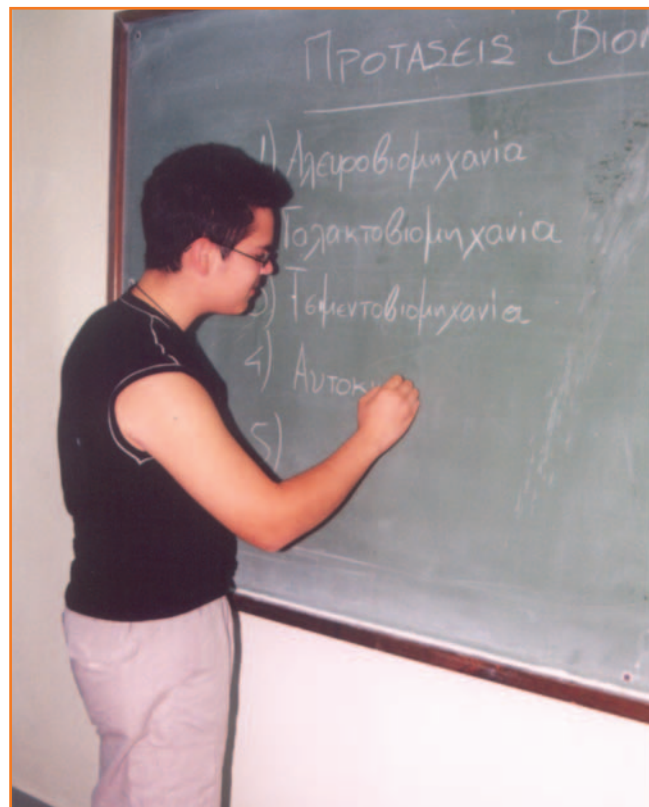 ΠΡΟΤΑΣΕΙΣ ΒΙΟΜ
1) Αλευροβιομηχανία
Γαλακτοβιομηχανία
3) Τσιμεντοβιομηχανία
4) Αυτοκι
5)